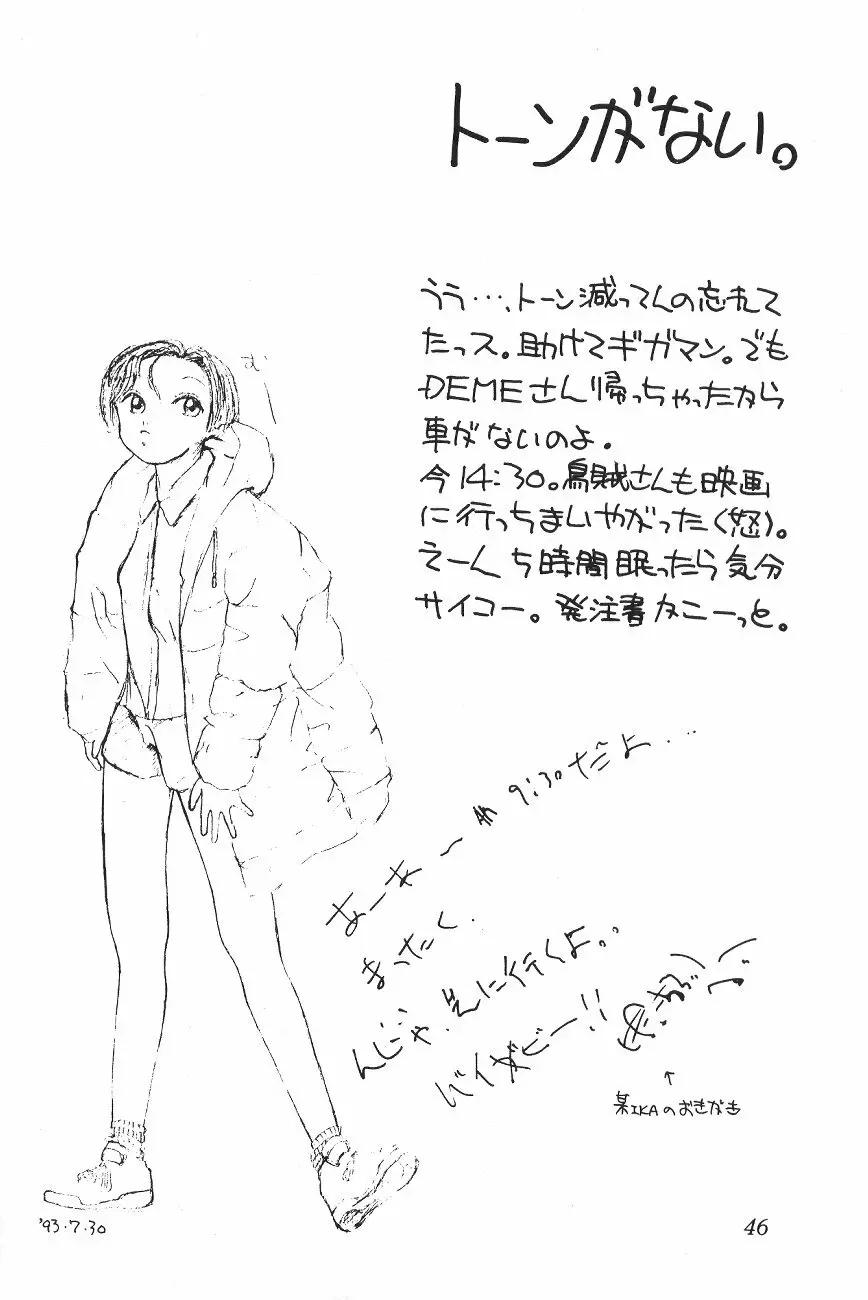 トーンがない。
うう…、トーン減ってんの忘れて
たっス。助けてギガマン。でも
DEMEさん帰っちゃったから
車がないのよ。
今14:30。烏賊さんも映画
に行っちまいやがった(怒)。
えーん 5時間眠ったら気分
サイコー。発注書かこーっと。
む
あーあ〜 9:30だよ…
まったく.
んじゃ、先に行くよ。
バイダビー!!
↑
某IKAのおきがき
'93.7.30
46